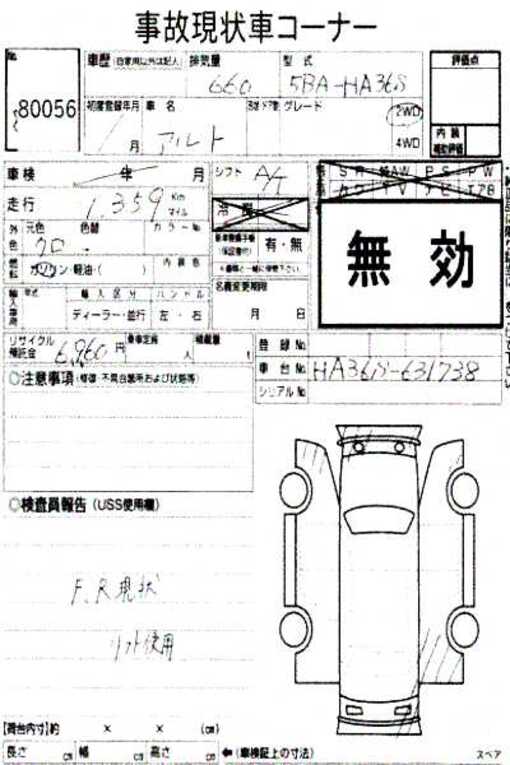 事故現状車コーナー
No.
80056
車歴 (自家用以外は記入) 排気量 型式 評価点
660 5BA-HA36S
初度登録年月 車名 グレード 2WD
月 アルト 4WD
内装
補助評価
車検 年 月 シフト AA
走行 1,359 Km
マイル
SR 純AW PS PW
カワ TV ナビ エアB
無効
外色 元色 色替 カラーNo.
クロ
有・無
燃料 ガソリン・軽油・( ) 内装色
名義変更期限
月 日
輸入車 年式 輸入区分 ハンドル
ディーラー・並行 左・右
リサイクル
預託金 6,960 円 乗車定員 人 積載量 t
登録No.
車台No. HA36S-631738
シリアルNo.
◎注意事項 (修復・不具合箇所および状態等)
◎検査員報告 (USS使用欄)
F,R現状
リフト使用
【荷台内寸】約 × × (cm)
長さ cm 幅 cm 高さ cm ←(車検証上の寸法)
スペア